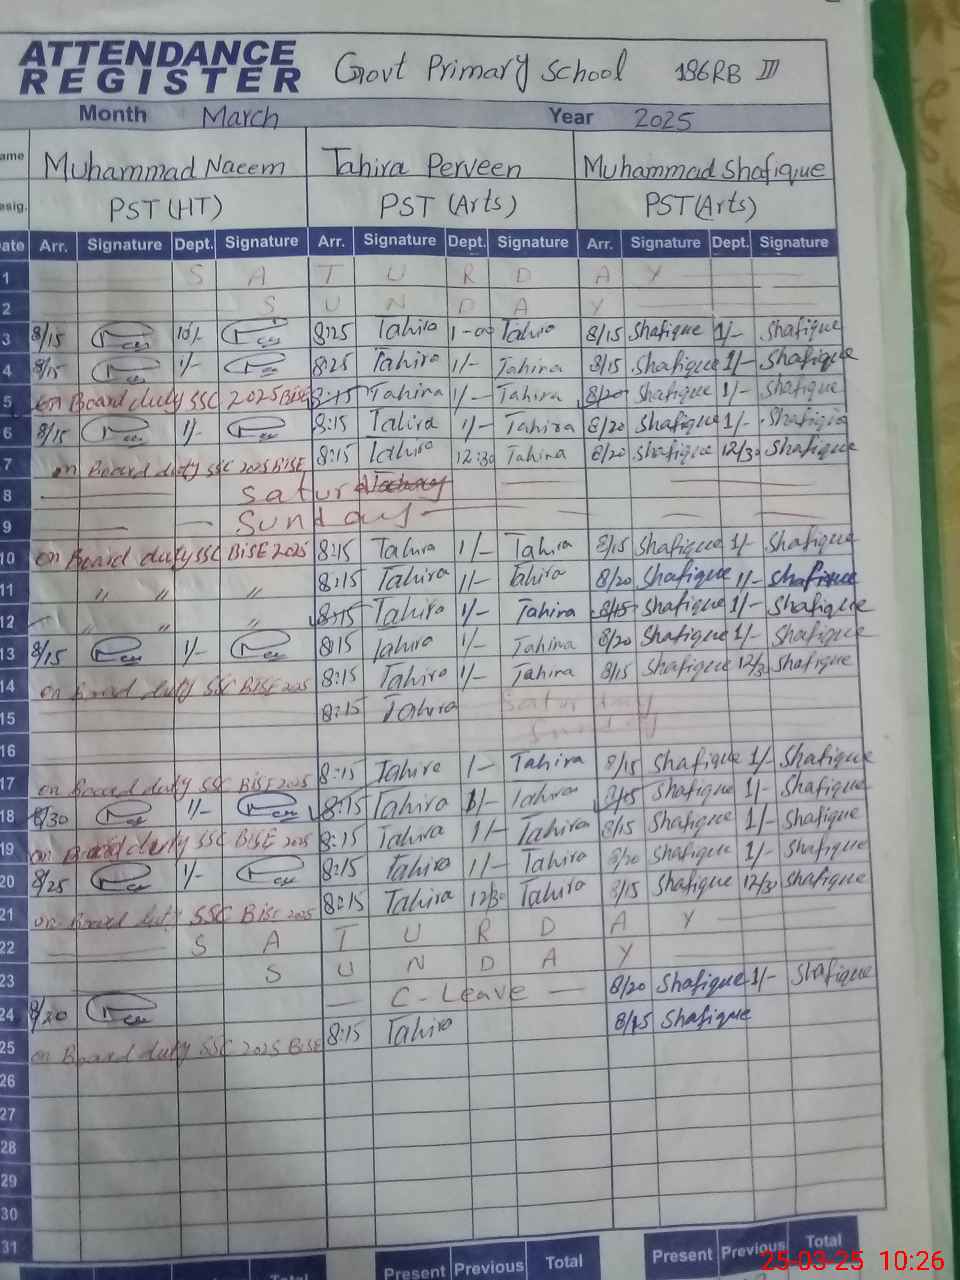 ATTENDANCE REGISTER Govt Primary School 196RB III
Month March Year 2025
ame Muhammad Naeem Tahira Perveen Muhammad Shafique
esig. PST (HT) PST (Arts) PST (Arts)
ate Arr. Signature Dept. Signature Arr. Signature Dept. Signature Arr. Signature Dept. Signature
1 S A T U R D A Y
2 S U N D A Y
3 8/15 8:25 Tahira 1-00 Tahira 8/15 Shafique 1/- Shafique
4 8/15 1/- 8:25 Tahira 1/- Tahira 8/15 Shafique 1/- Shafique
5 on Board duty SSC 2025 BISE 8:15 Tahira 1/- Tahira 8/20 Shafique 1/- Shafique
6 8/15 1/- 8:15 Tahira 1/- Tahira 8/20 Shafique 1/- Shafique
7 on Board duty SSC 2025 BISE 8:15 Tahira 12:30 Tahira 8/20 Shafique 12/30 Shafique
8 Saturday
9 Sunday
10 on Board duty SSC BISE 2025 8:15 Tahira 1/- Tahira 8/15 Shafique 1/- Shafique
11 " " " 8:15 Tahira 1/- Tahira 8/20 Shafique 1/- Shafique
12 " " " 8:15 Tahira 1/- Tahira 8/15 Shafique 1/- Shafique
13 8/15 1/- 8:15 Tahira 1/- Tahira 8/20 Shafique 1/- Shafique
14 on Board duty SSC BISE 2025 8:15 Tahira 1/- Tahira 8/15 Shafique 12/30 Shafique
15 8:15 Tahira Saturday
16 Sunday
17 on Board duty SSC BISE 2025 8:15 Tahira 1/- Tahira 8/15 Shafique 1/- Shafique
18 8/30 1/- 8:15 Tahira 1/- Tahira 8/15 Shafique 1/- Shafique
19 on Board duty SSC BISE 2025 8:15 Tahira 1/- Tahira 8/15 Shafique 1/- Shafique
20 8/25 1/- 8:15 Tahira 1/- Tahira 8/20 Shafique 1/- Shafique
21 on Board duty SSC BISE 2025 8:15 Tahira 12/30 Tahira 8/15 Shafique 12/30 Shafique
22 S A T U R D A Y
23 S U N D A Y
24 8/20 C-Leave 8/20 Shafique 1/- Shafique
25 on Board duty SSC 2025 BISE 8:15 Tahira 8/15 Shafique
26
27
28
29
30
31
Total Present Previous Total Present Previous Total
25-03-25 10:26